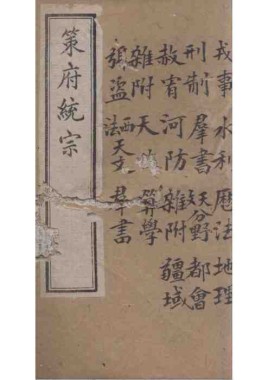 戎事 水利 曆法 地理
刑制 羣書 天文分野 都會
赦宥 河防 雜附 疆域
雜附 天 算學
弭盜 西法天文 羣書
策府統宗